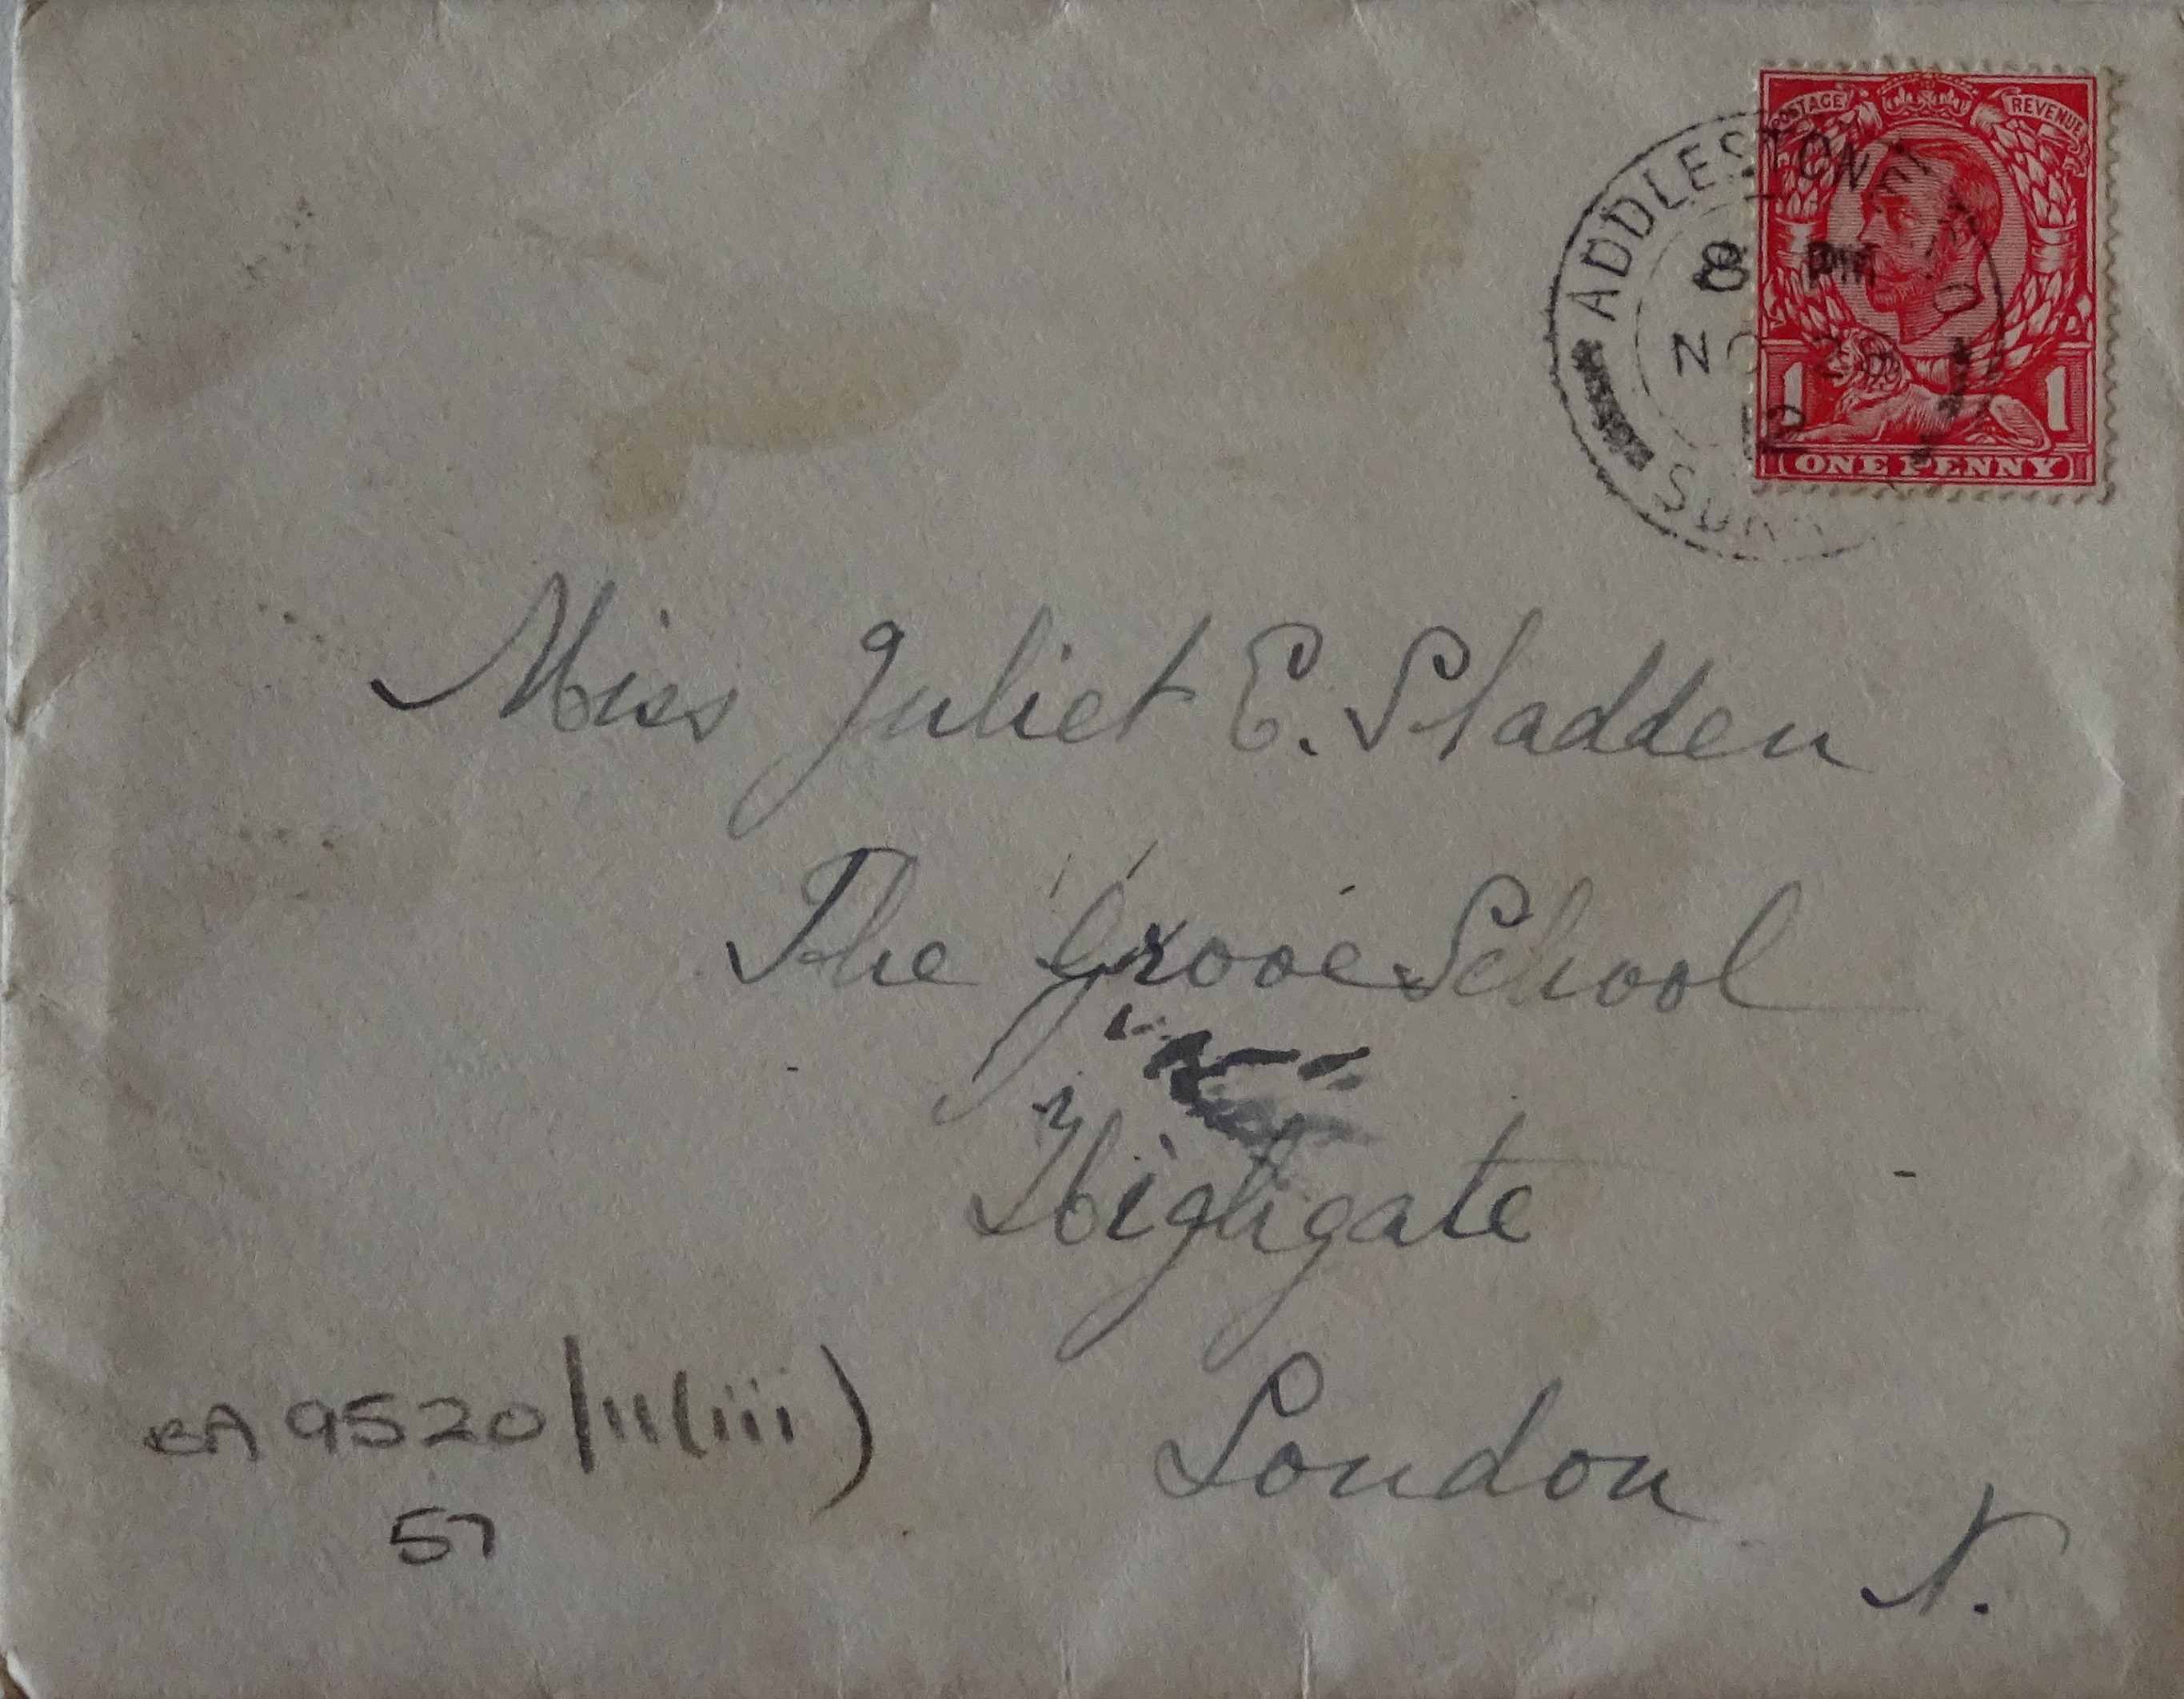 POSTAGE REVENUE
ADDLESTONE
8 PM
NO 28
12
1 1
ONE PENNY
Miss Juliet E. Sladden
The Grove School
Highgate
London
N.
EA 9520/11(iii)
57